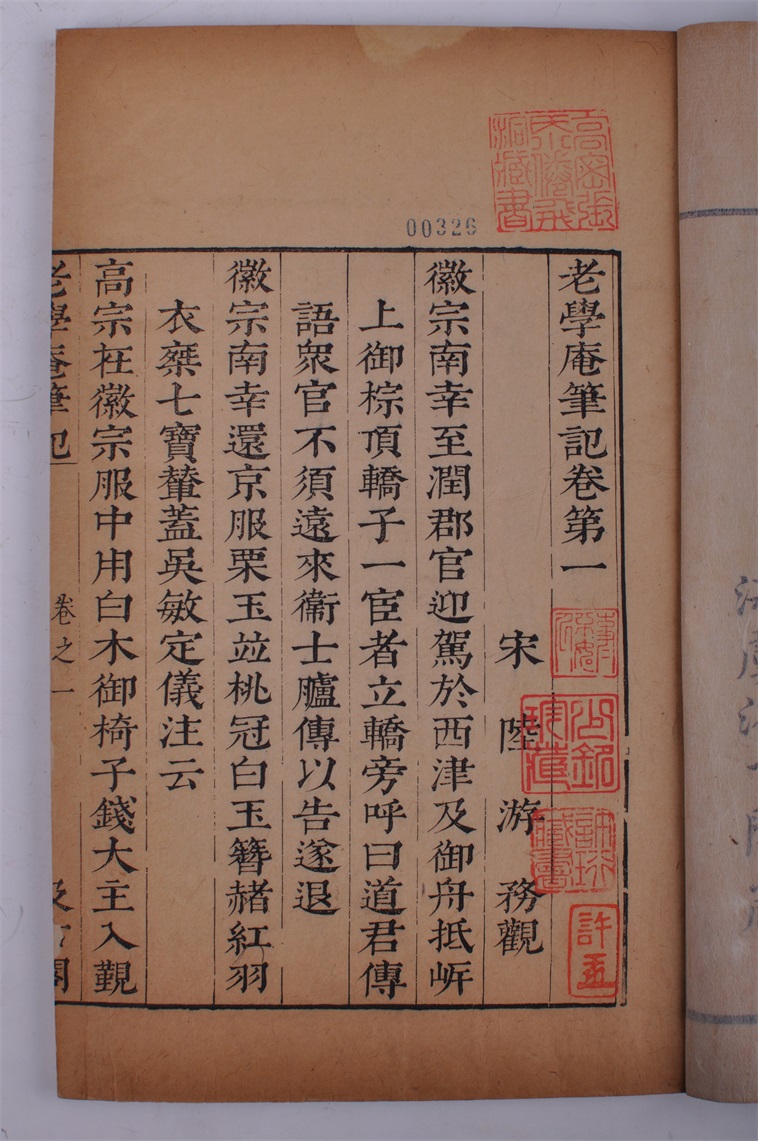 老學庵筆記卷第一
宋 陸游務觀
徽宗南幸至潤郡官迎駕於西津及御舟抵岍
上御椶頂轎子一宦者立轎旁呼曰道君傳
語衆官不須遠來衛士臚傳以告遂退
徽宗南幸還京服栗玉竝桃冠白玉簪赭紅羽
衣椉七寶輦蓋吳敏定儀注云
高宗在徽宗服中用白木御椅子錢大主入覲
老學庵筆記
卷之一
汲古閣
00326
許
藏書